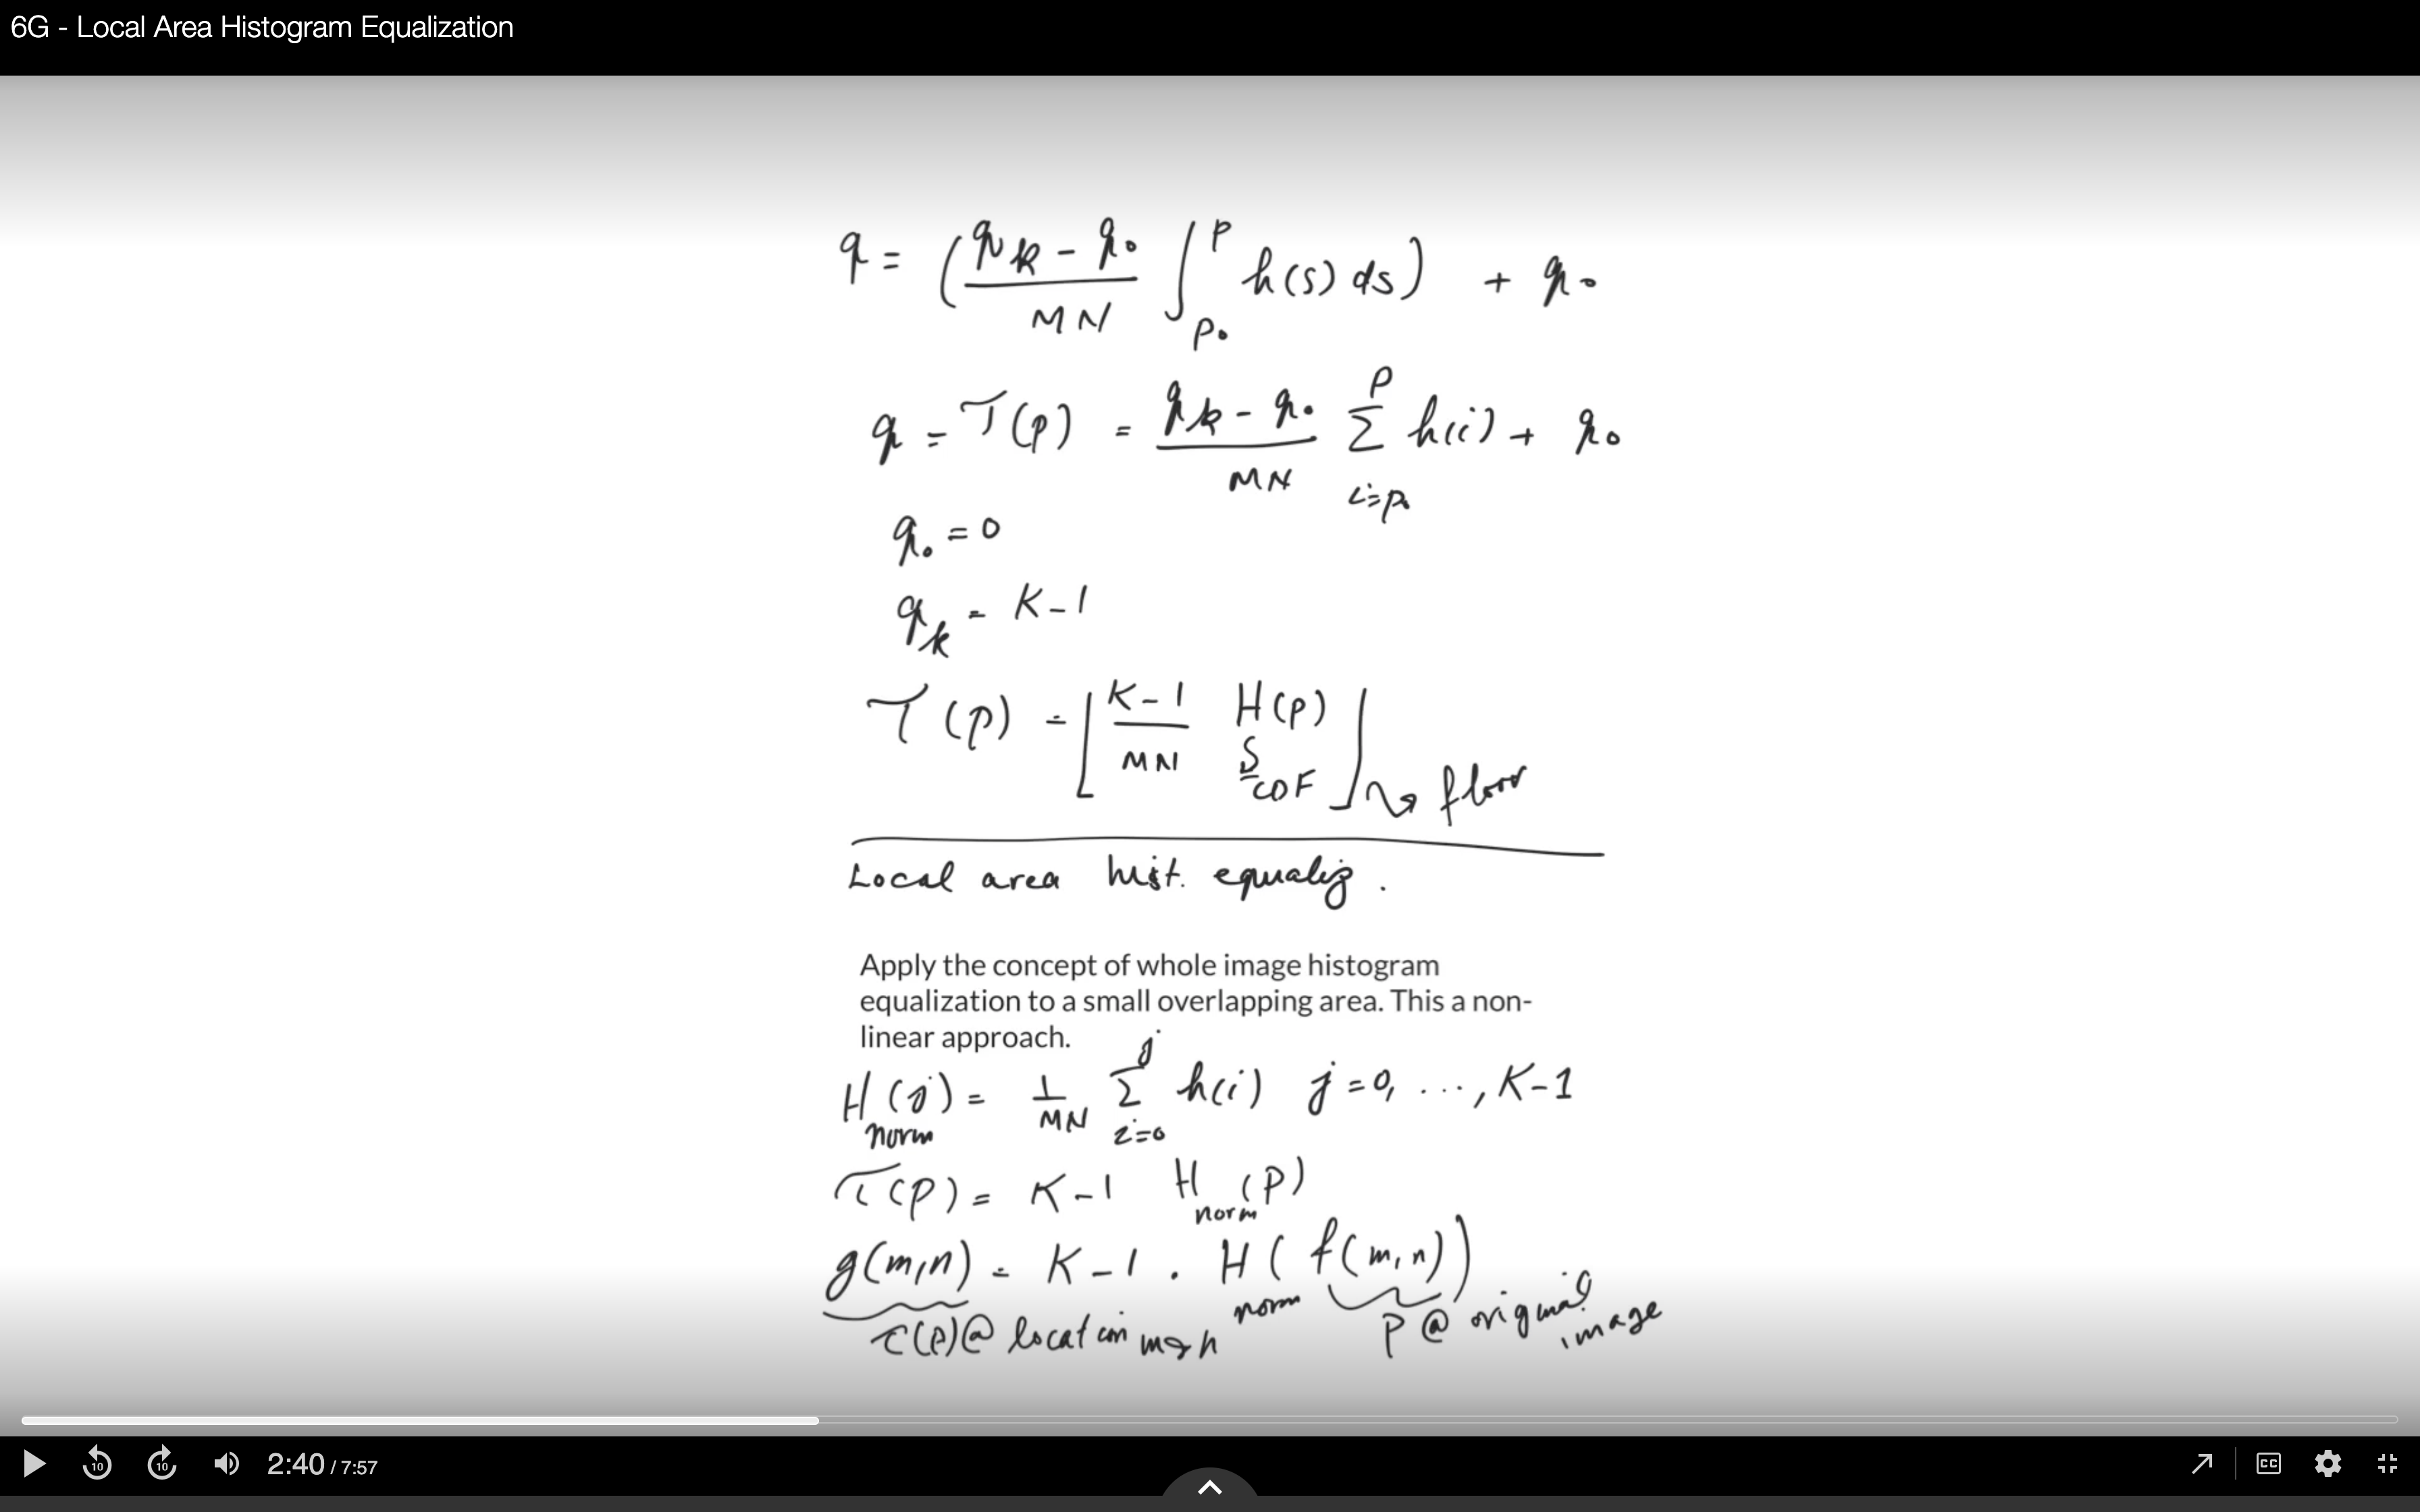 6G - Local Area Histogram Equalization
q = ( (q_k - q_0) / MN ∫_{p_0}^{p} h(s) ds ) + q_0
q = T(p) = (q_k - q_0) / MN Σ_{i=p_0}^{p} h(i) + q_0
q_0 = 0
q_k = K-1
T(p) = ⌊ (K-1) / MN H(p) ⌋ → floor
CDF
Local area hist. equaliz.
Apply the concept of whole image histogram
equalization to a small overlapping area. This a non-
linear approach.
H_norm(j) = 1/MN Σ_{i=0}^{j} h(i) j = 0, ..., K-1
T(p) = K-1 H_norm(p)
g(m,n) = K-1 . H_norm( f(m,n))
T(p)@ location m,n p @ original image
10 10 2:40 / 7:57 CC